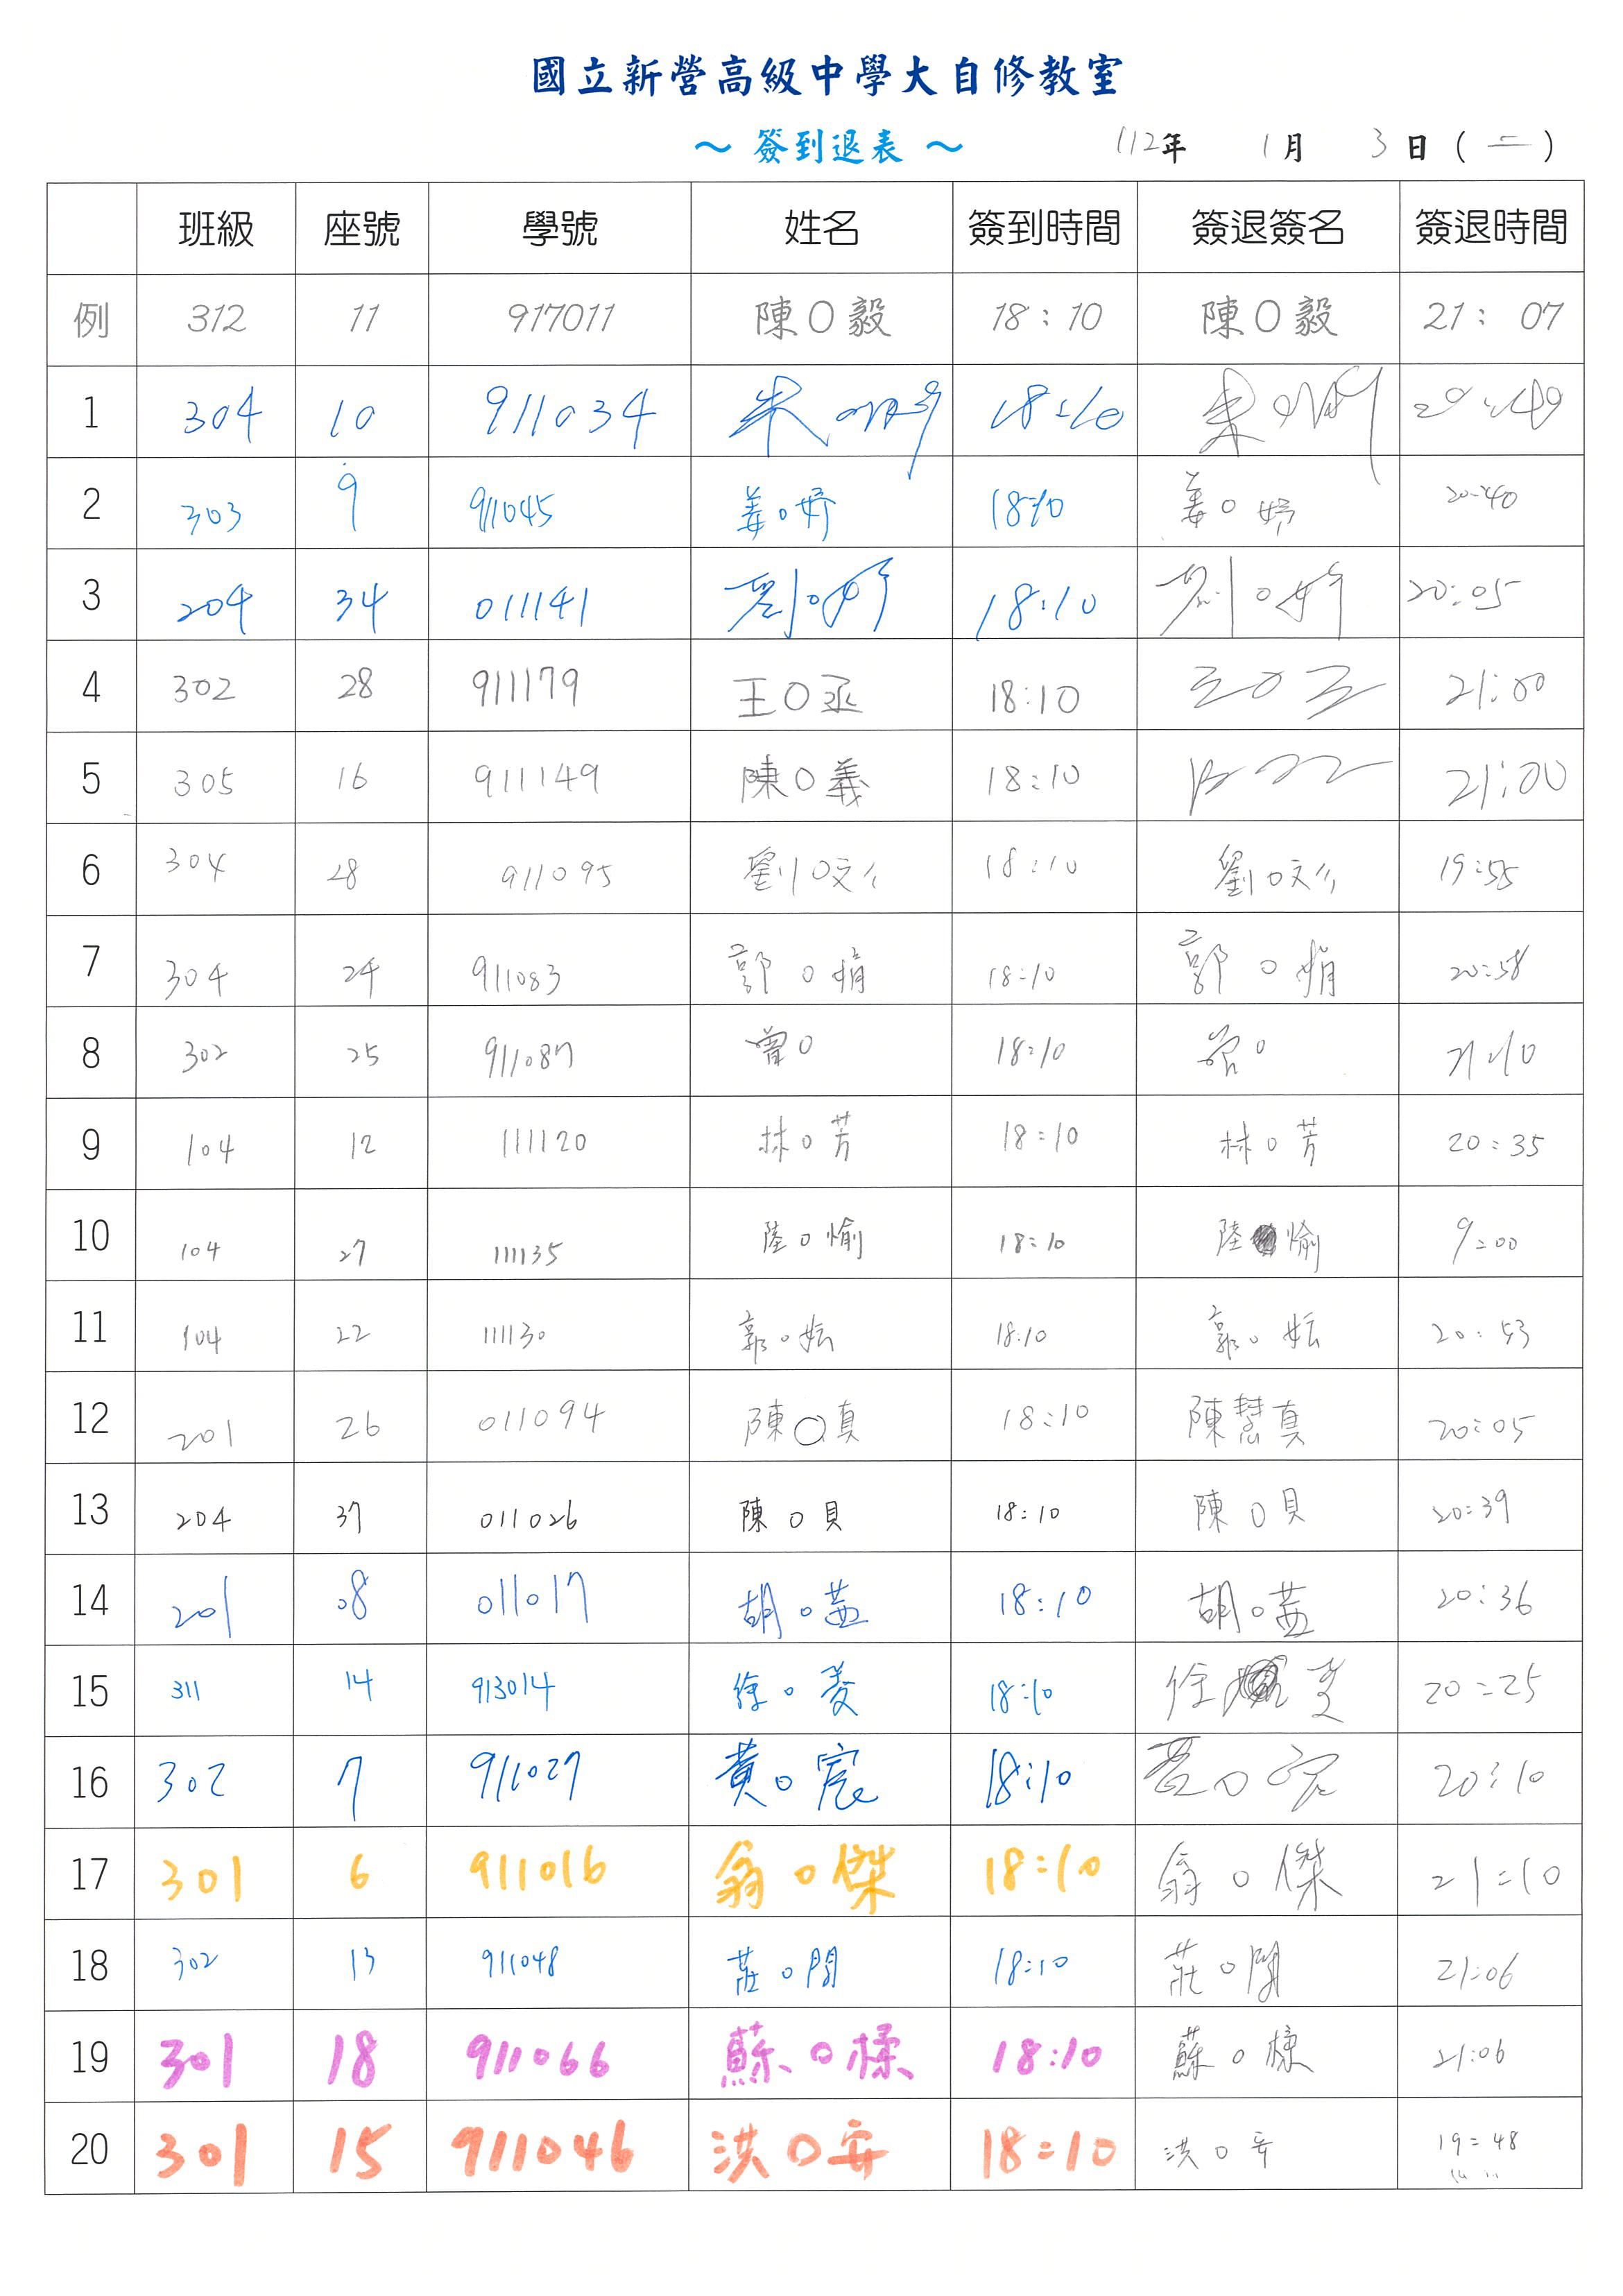 國立新營高級中學大自修教室
～ 簽到退表 ～ 112年 1月 3日(二)
班級 座號 學號 姓名 簽到時間 簽退簽名 簽退時間
例 312 11 917011 陳○毅 18:10 陳○毅 21:07
1 304 10 911034 朱○ 18:10 朱○ 20:49
2 303 9 911045 姜○妤 18:10 姜○妤 20:40
3 204 34 011141 劉○妤 18:10 劉○妤 20:05
4 302 28 911179 王○丞 18:10 王○丞 21:00
5 305 16 911149 陳○義 18:10 21:00
6 304 28 911095 劉○彣 18:10 劉○彣 19:55
7 304 24 911083 郭○娟 18:10 郭○娟 20:58
8 302 25 911087 曾○ 18:10 曾○ 21:10
9 104 12 111120 林○芳 18:10 林○芳 20:35
10 104 27 111135 陸○愉 18:10 陸 愉 9:00
11 104 22 111130 郭○妘 18:10 郭○妘 20:53
12 201 26 011094 陳○真 18:10 陳慧真 20:05
13 204 37 011026 陳○貝 18:10 陳○貝 20:39
14 201 08 011017 胡○茜 18:10 胡○茜 20:36
15 311 14 913014 徐○菱 18:10 徐 20:25
16 302 7 911027 黃○宸 18:10 黃○宸 20:10
17 301 6 911016 翁○傑 18:10 翁○傑 21:10
18 302 13 911048 莊○閔 18:10 莊○閔 21:06
19 301 18 911066 蘇○ 18:10 蘇○ 21:06
20 301 15 911046 洪○安 18:10 洪○安 19:48